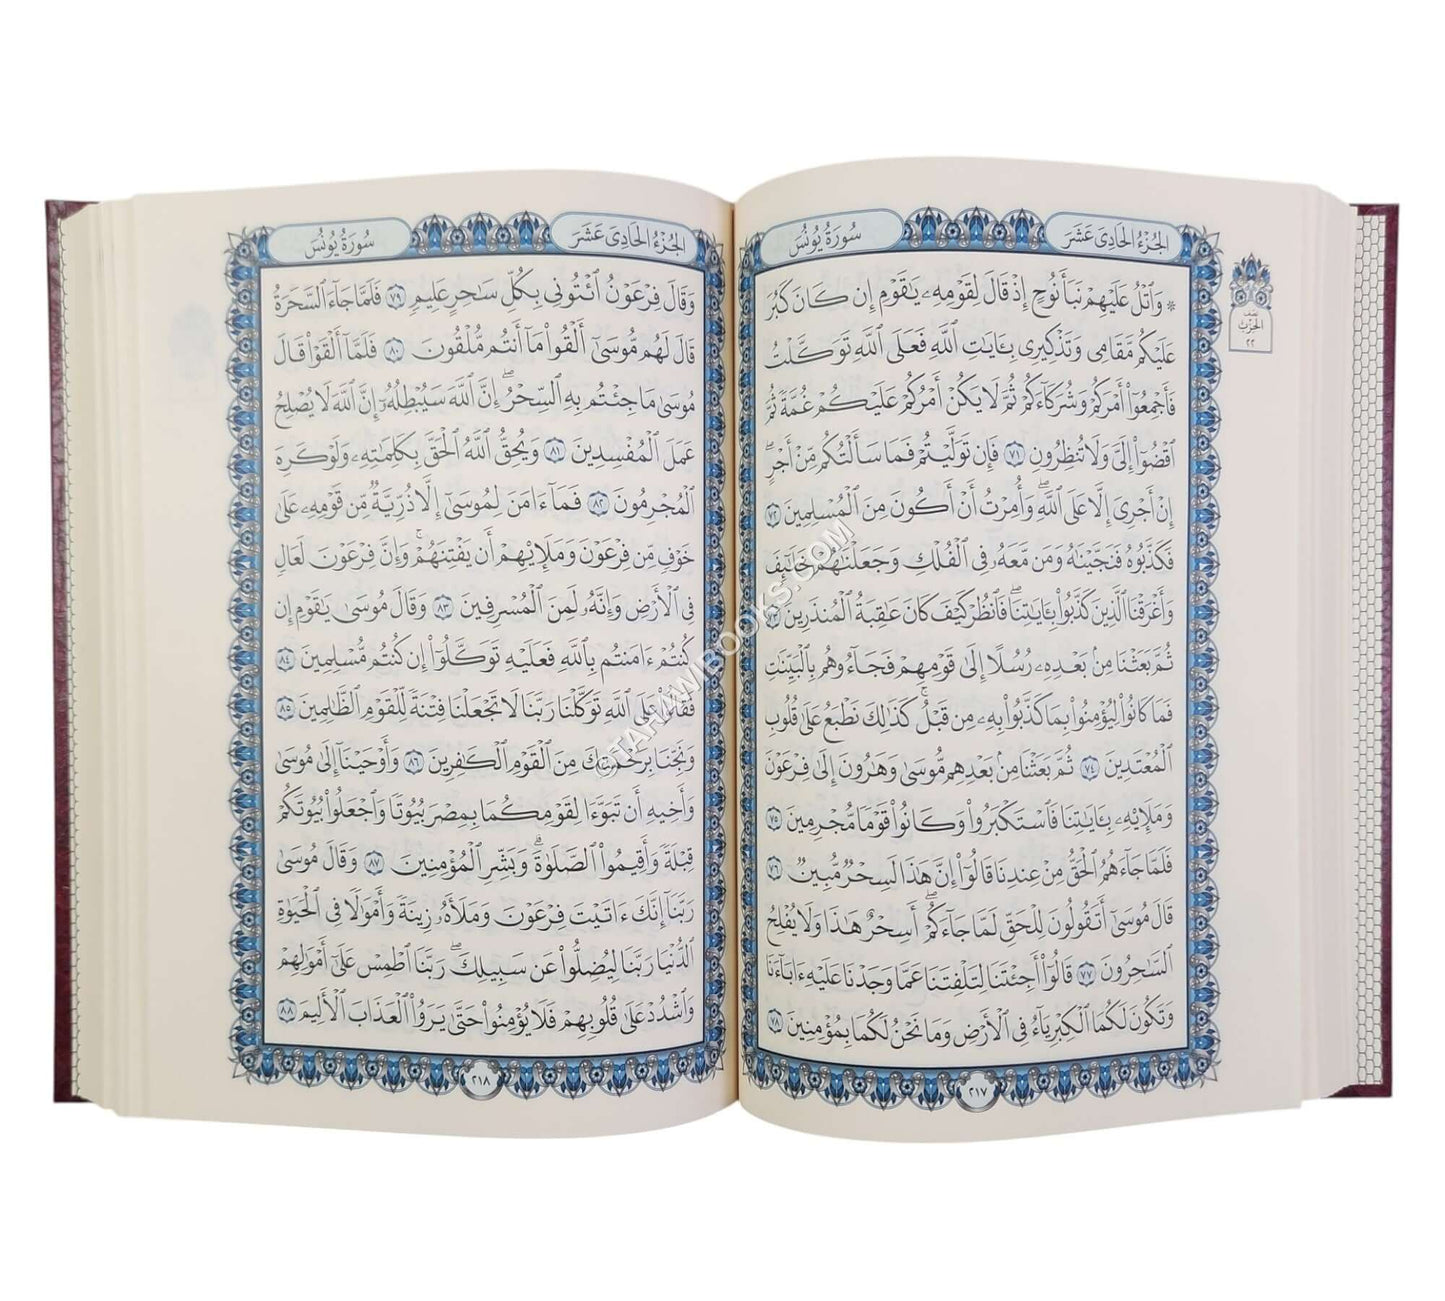 الجُزْءُ الحَادِىَ عَشَرَ
سُورَةُ يُونُسَ
نِصْفُ
الحِزْبِ
٢٢
* وَٱتْلُ عَلَيْهِمْ نَبَأَ نُوحٍ إِذْ قَالَ لِقَوْمِهِۦ يَٰقَوْمِ إِن كَانَ كَبُرَ
عَلَيْكُم مَّقَامِى وَتَذْكِيرِى بِـَٔايَٰتِ ٱللَّهِ فَعَلَى ٱللَّهِ تَوَكَّلْتُ
فَأَجْمِعُوٓا۟ أَمْرَكُمْ وَشُرَكَآءَكُمْ ثُمَّ لَا يَكُنْ أَمْرُكُمْ عَلَيْكُمْ غُمَّةً ثُمَّ
ٱقْضُوٓا۟ إِلَىَّ وَلَا تُنظِرُونِ ٧١ فَإِن تَوَلَّيْتُمْ فَمَا سَأَلْتُكُم مِّنْ أَجْرٍ ۖ
إِنْ أَجْرِىَ إِلَّا عَلَى ٱللَّهِ ۖ وَأُمِرْتُ أَنْ أَكُونَ مِنَ ٱلْمُسْلِمِينَ ٧٢
فَكَذَّبُوهُ فَنَجَّيْنَٰهُ وَمَن مَّعَهُۥ فِى ٱلْفُلْكِ وَجَعَلْنَٰهُمْ خَلَٰٓئِفَ
وَأَغْرَقْنَا ٱلَّذِينَ كَذَّبُوا۟ بِـَٔايَٰتِنَا ۖ فَٱنظُرْ كَيْفَ كَانَ عَٰقِبَةُ ٱلْمُنذَرِينَ ٧٣
ثُمَّ بَعَثْنَا مِنۢ بَعْدِهِۦ رُسُلًا إِلَىٰ قَوْمِهِمْ فَجَآءُوهُم بِٱلْبَيِّنَٰتِ
فَمَا كَانُوا۟ لِيُؤْمِنُوا۟ بِمَا كَذَّبُوا۟ بِهِۦ مِن قَبْلُ ۚ كَذَٰلِكَ نَطْبَعُ عَلَىٰ قُلُوبِ
ٱلْمُعْتَدِينَ ٧٤ ثُمَّ بَعَثْنَا مِنۢ بَعْدِهِم مُّوسَىٰ وَهَٰرُونَ إِلَىٰ فِرْعَوْنَ
وَمَلَإِي۟هِۦ بِـَٔايَٰتِنَا فَٱسْتَكْبَرُوا۟ وَكَانُوا۟ قَوْمًا مُّجْرِمِينَ ٧٥
فَلَمَّا جَآءَهُمُ ٱلْحَقُّ مِنْ عِندِنَا قَالُوٓا۟ إِنَّ هَٰذَا لَسِحْرٌ مُّبِينٌ ٧٦
قَالَ مُوسَىٰٓ أَتَقُولُونَ لِلْحَقِّ لَمَّا جَآءَكُمْ ۖ أَسِحْرٌ هَٰذَا وَلَا يُفْلِحُ
ٱلسَّٰحِرُونَ ٧٧ قَالُوٓا۟ أَجِئْتَنَا لِتَلْفِتَنَا عَمَّا وَجَدْنَا عَلَيْهِ ءَابَآءَنَا
وَتَكُونَ لَكُمَا ٱلْكِبْرِيَآءُ فِى ٱلْأَرْضِ وَمَا نَحْنُ لَكُمَا بِمُؤْمِنِينَ ٧٨
٢١٧
الجُزْءُ الحَادِىَ عَشَرَ
سُورَةُ يُونُسَ
وَقَالَ فِرْعَوْنُ ٱئْتُونِى بِكُلِّ سَٰحِرٍ عَلِيمٍ ٧٩ فَلَمَّا جَآءَ ٱلسَّحَرَةُ
قَالَ لَهُم مُّوسَىٰٓ أَلْقُوا۟ مَآ أَنتُم مُّلْقُونَ ٨٠ فَلَمَّآ أَلْقَوْا۟ قَالَ
مُوسَىٰ مَا جِئْتُم بِهِ ٱلسِّحْرُ ۖ إِنَّ ٱللَّهَ سَيُبْطِلُهُۥٓ إِنَّ ٱللَّهَ لَا يُصْلِحُ
عَمَلَ ٱلْمُفْسِدِينَ ٨١ وَيُحِقُّ ٱللَّهُ ٱلْحَقَّ بِكَلِمَٰتِهِۦ وَلَوْ كَرِهَ
ٱلْمُجْرِمُونَ ٨٢ فَمَآ ءَامَنَ لِمُوسَىٰٓ إِلَّا ذُرِّيَّةٌ مِّن قَوْمِهِۦ عَلَىٰ
خَوْفٍ مِّن فِرْعَوْنَ وَمَلَإِي۟هِمْ أَن يَفْتِنَهُمْ ۚ وَإِنَّ فِرْعَوْنَ لَعَالٍ
فِى ٱلْأَرْضِ وَإِنَّهُۥ لَمِنَ ٱلْمُسْرِفِينَ ٨٣ وَقَالَ مُوسَىٰ يَٰقَوْمِ إِن
كُنتُمْ ءَامَنتُم بِٱللَّهِ فَعَلَيْهِ تَوَكَّلُوٓا۟ إِن كُنتُم مُّسْلِمِينَ ٨٤
فَقَالُوا۟ عَلَى ٱللَّهِ تَوَكَّلْنَا رَبَّنَا لَا تَجْعَلْنَا فِتْنَةً لِّلْقَوْمِ ٱلظَّٰلِمِينَ ٨٥
وَنَجِّنَا بِرَحْمَتِكَ مِنَ ٱلْقَوْمِ ٱلْكَٰفِرِينَ ٨٦ وَأَوْحَيْنَآ إِلَىٰ مُوسَىٰ
وَأَخِيهِ أَن تَبَوَّءَا لِقَوْمِكُمَا بِمِصْرَ بُيُوتًا وَٱجْعَلُوا۟ بُيُوتَكُمْ
قِبْلَةً وَأَقِيمُوا۟ ٱلصَّلَوٰةَ ۗ وَبَشِّرِ ٱلْمُؤْمِنِينَ ٨٧ وَقَالَ مُوسَىٰ
رَبَّنَآ إِنَّكَ ءَاتَيْتَ فِرْعَوْنَ وَمَلَأَهُۥ زِينَةً وَأَمْوَٰلًا فِى ٱلْحَيَوٰةِ
ٱلدُّنْيَا رَبَّنَا لِيُضِلُّوا۟ عَن سَبِيلِكَ ۖ رَبَّنَا ٱطْمِسْ عَلَىٰٓ أَمْوَٰلِهِمْ
وَٱشْدُدْ عَلَىٰ قُلُوبِهِمْ فَلَا يُؤْمِنُوا۟ حَتَّىٰ يَرَوُا۟ ٱلْعَذَابَ ٱلْأَلِيمَ ٨٨
٢١٨
©TAHAWIBOOKS.COM